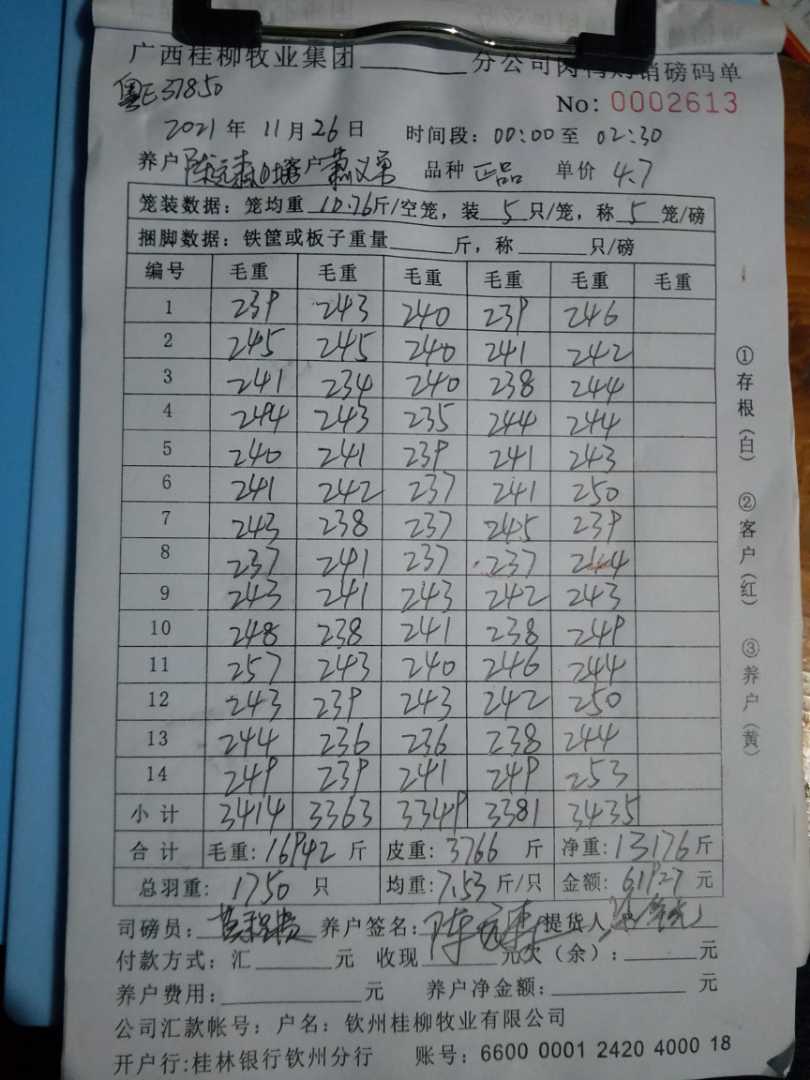 广西桂柳牧业集团________分公司肉鸭购销磅码单
粤E37850
No: 0002613
2021年11月26日 时间段: 00:00至02:30
养户 陈远森 客户萧义勇 品种 正品 单价 4.7
笼装数据: 笼均重 10.76斤/空笼, 装 5 只/笼, 称 5 笼/磅
捆脚数据: 铁筐或板子重量______斤, 称______只/磅
编号 毛重 毛重 毛重 毛重 毛重 毛重
1 239 243 240 239 246
2 245 245 240 241 242
3 241 234 240 238 244
4 244 243 235 244 244
5 240 241 239 241 243
6 241 242 237 241 250
7 243 238 237 245 239
8 237 241 237 237 244
9 243 241 243 242 243
10 248 238 241 238 249
11 257 243 240 246 244
12 243 239 243 242 250
13 244 236 236 238 244
14 249 239 241 249 253
小计 3414 3363 3349 3381 3435
合计 毛重: 16942 斤 皮重: 3766 斤 净重: 13176斤
总羽重: 1750 只 均重: 7.53斤/只 金额: 61927元
司磅员: 养户签名: 陈远森 提货人
付款方式: 汇______元 收现______元欠(余): ______元
养户费用: ______元 养户净金额: ______元
公司汇款帐号: 户名: 钦州桂柳牧业有限公司
开户行: 桂林银行钦州分行 账号: 6600 0001 2420 4000 18
①存根(白) ②客户(红) ③养户(黄)